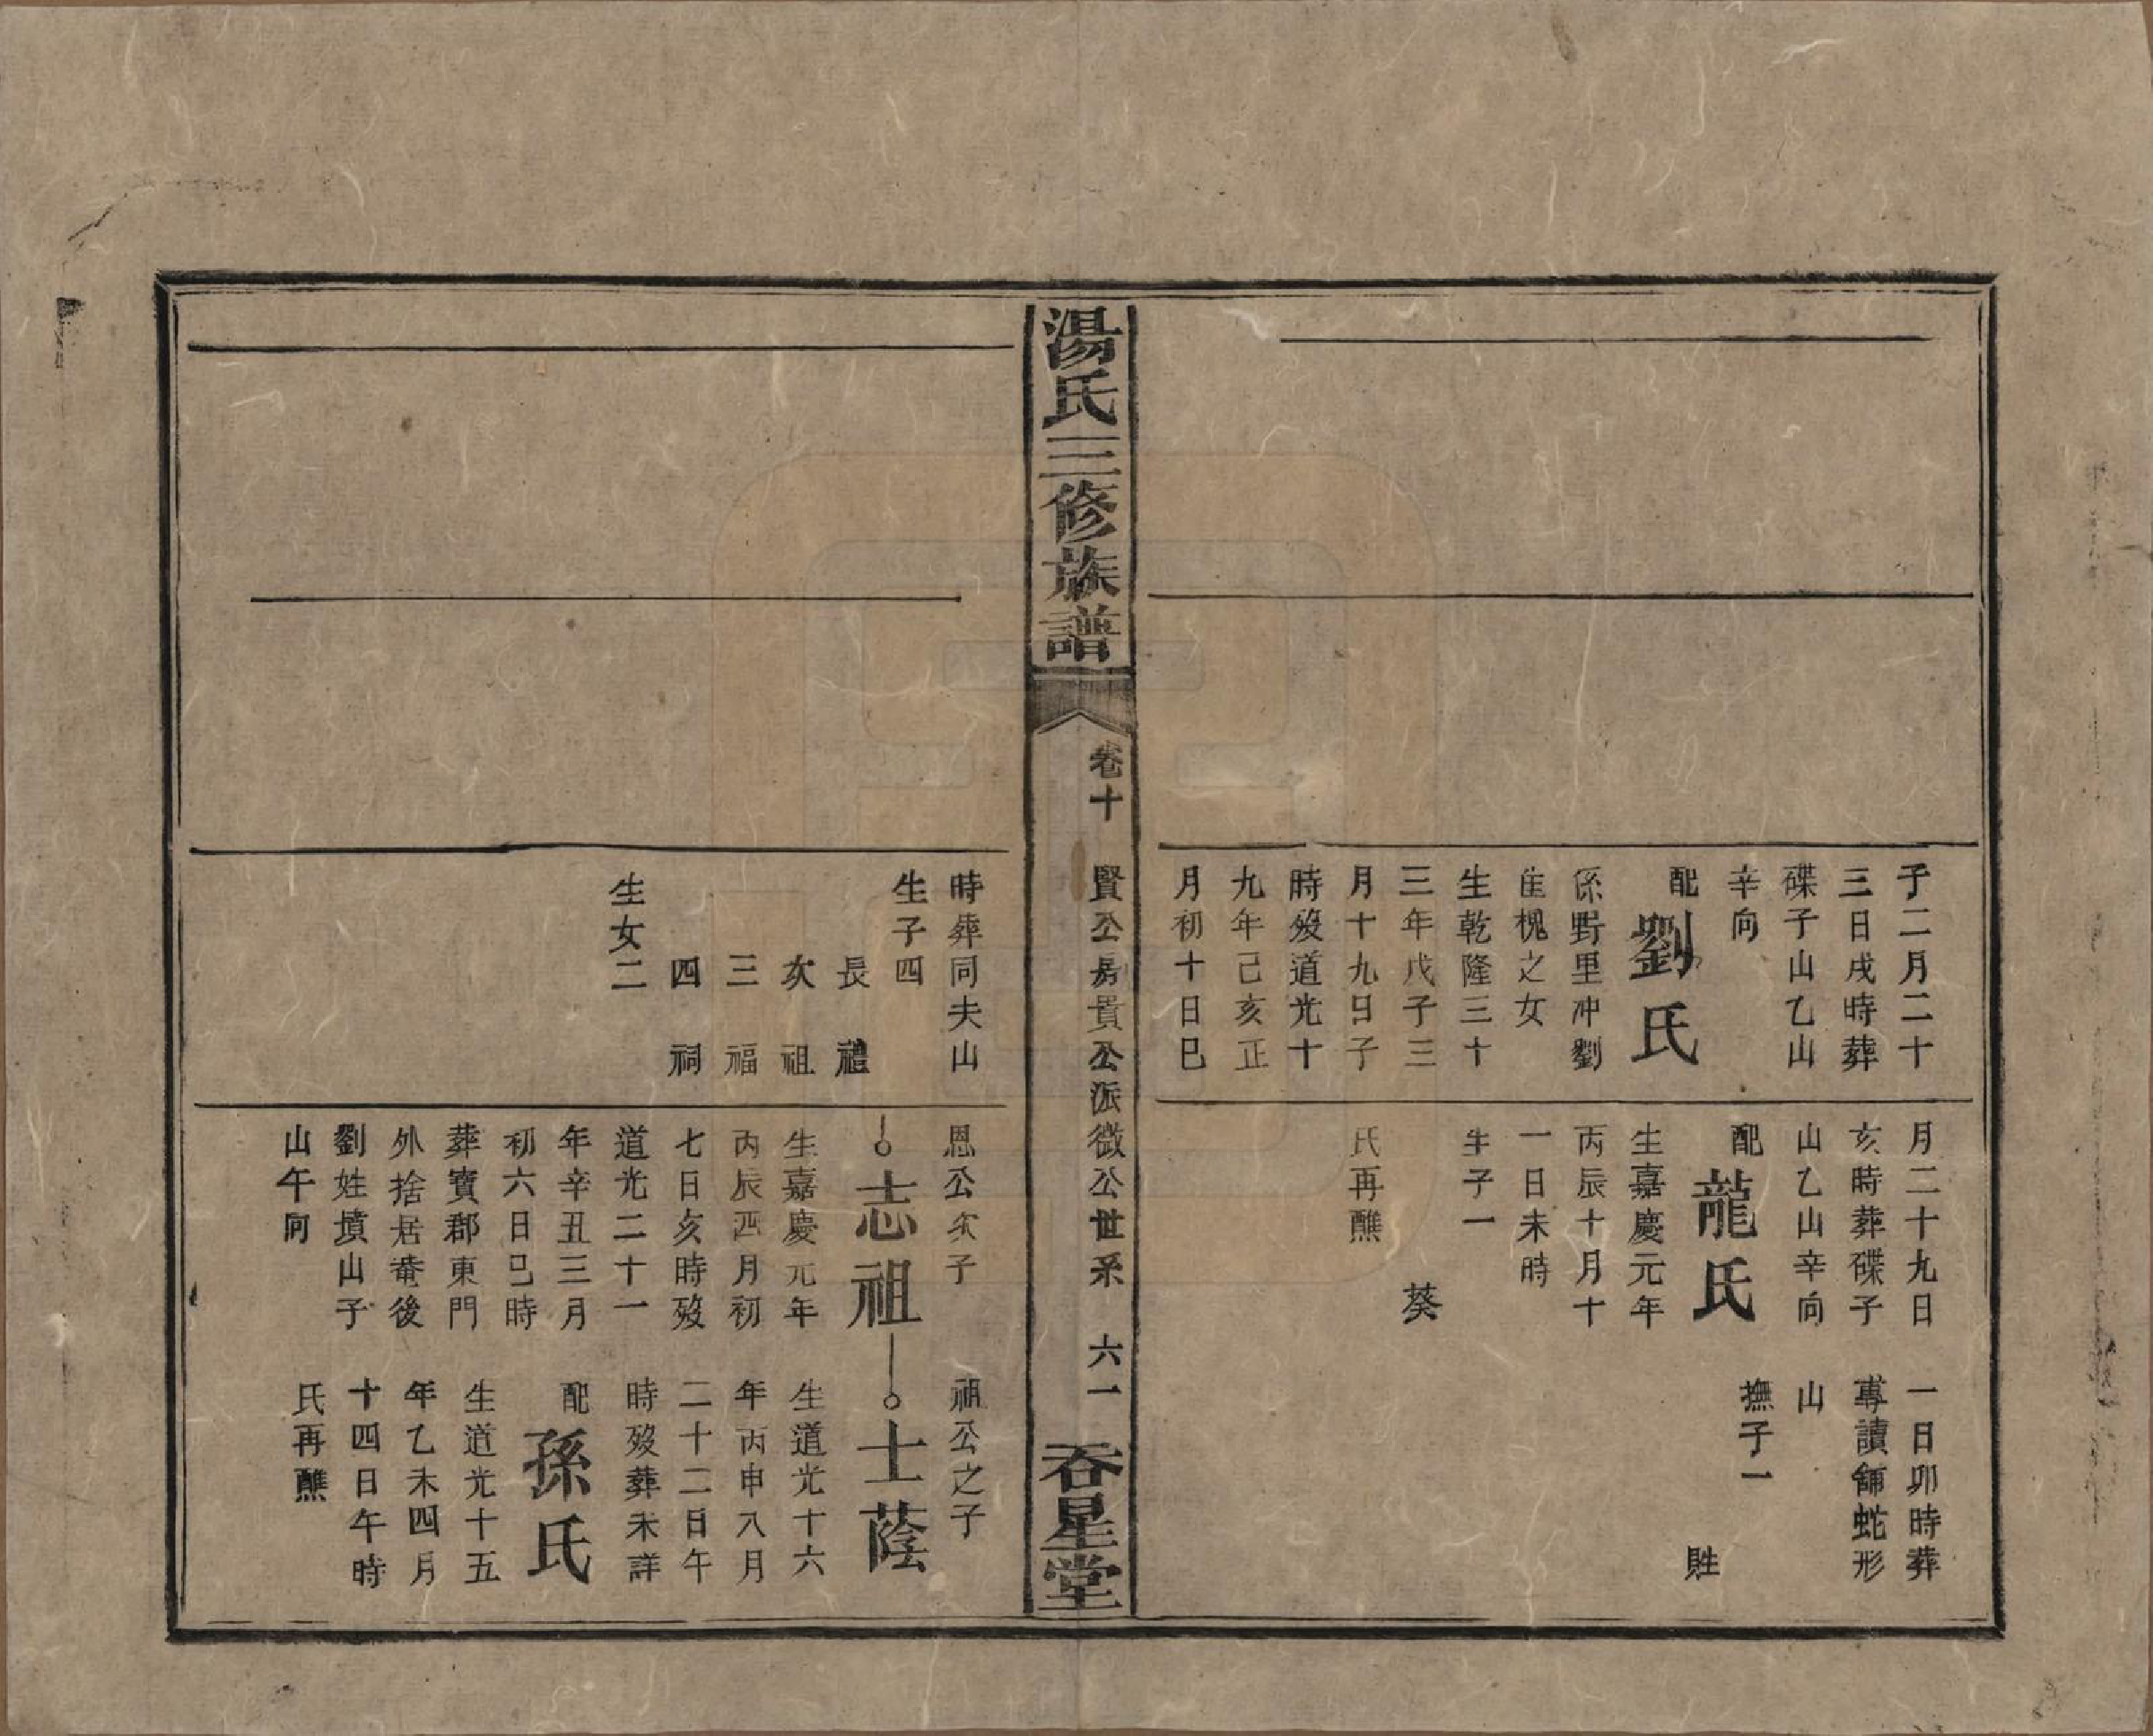 子二月二十
三日戌時葬
碟子山乙山
辛向
配劉氏
係野里冲劉
隹槐之女
生乾隆三十
三年戊子三
月十九日子
時歿道光十
九年己亥正
月初十日巳
月二十九日
亥時葬碟子
山乙山辛向
配龍氏
生嘉慶元年
丙辰十月十
一日未時
生子一
葵
氏再醮
一日卯時葬
專讀舖蛇形
山
撫子一
甠
湯氏三修族譜
卷十
賢公房貴公派微公世系
六一
吞星堂
時葬同夫山
生子四
長 禮
次 祖
三 福
四 祠
生女二
恩公次子
志祖
生嘉慶元年
丙辰四月初
七日亥時歿
道光二十一
年辛丑三月
初六日巳時
葬寶郡東門
外捨居菴後
劉姓墳山子
山午向
祖公之子
士蔭
生道光十六
年丙申八月
二十二日午
時歿葬未詳
配孫氏
生道光十五
年乙未四月
十四日午時
氏再醮